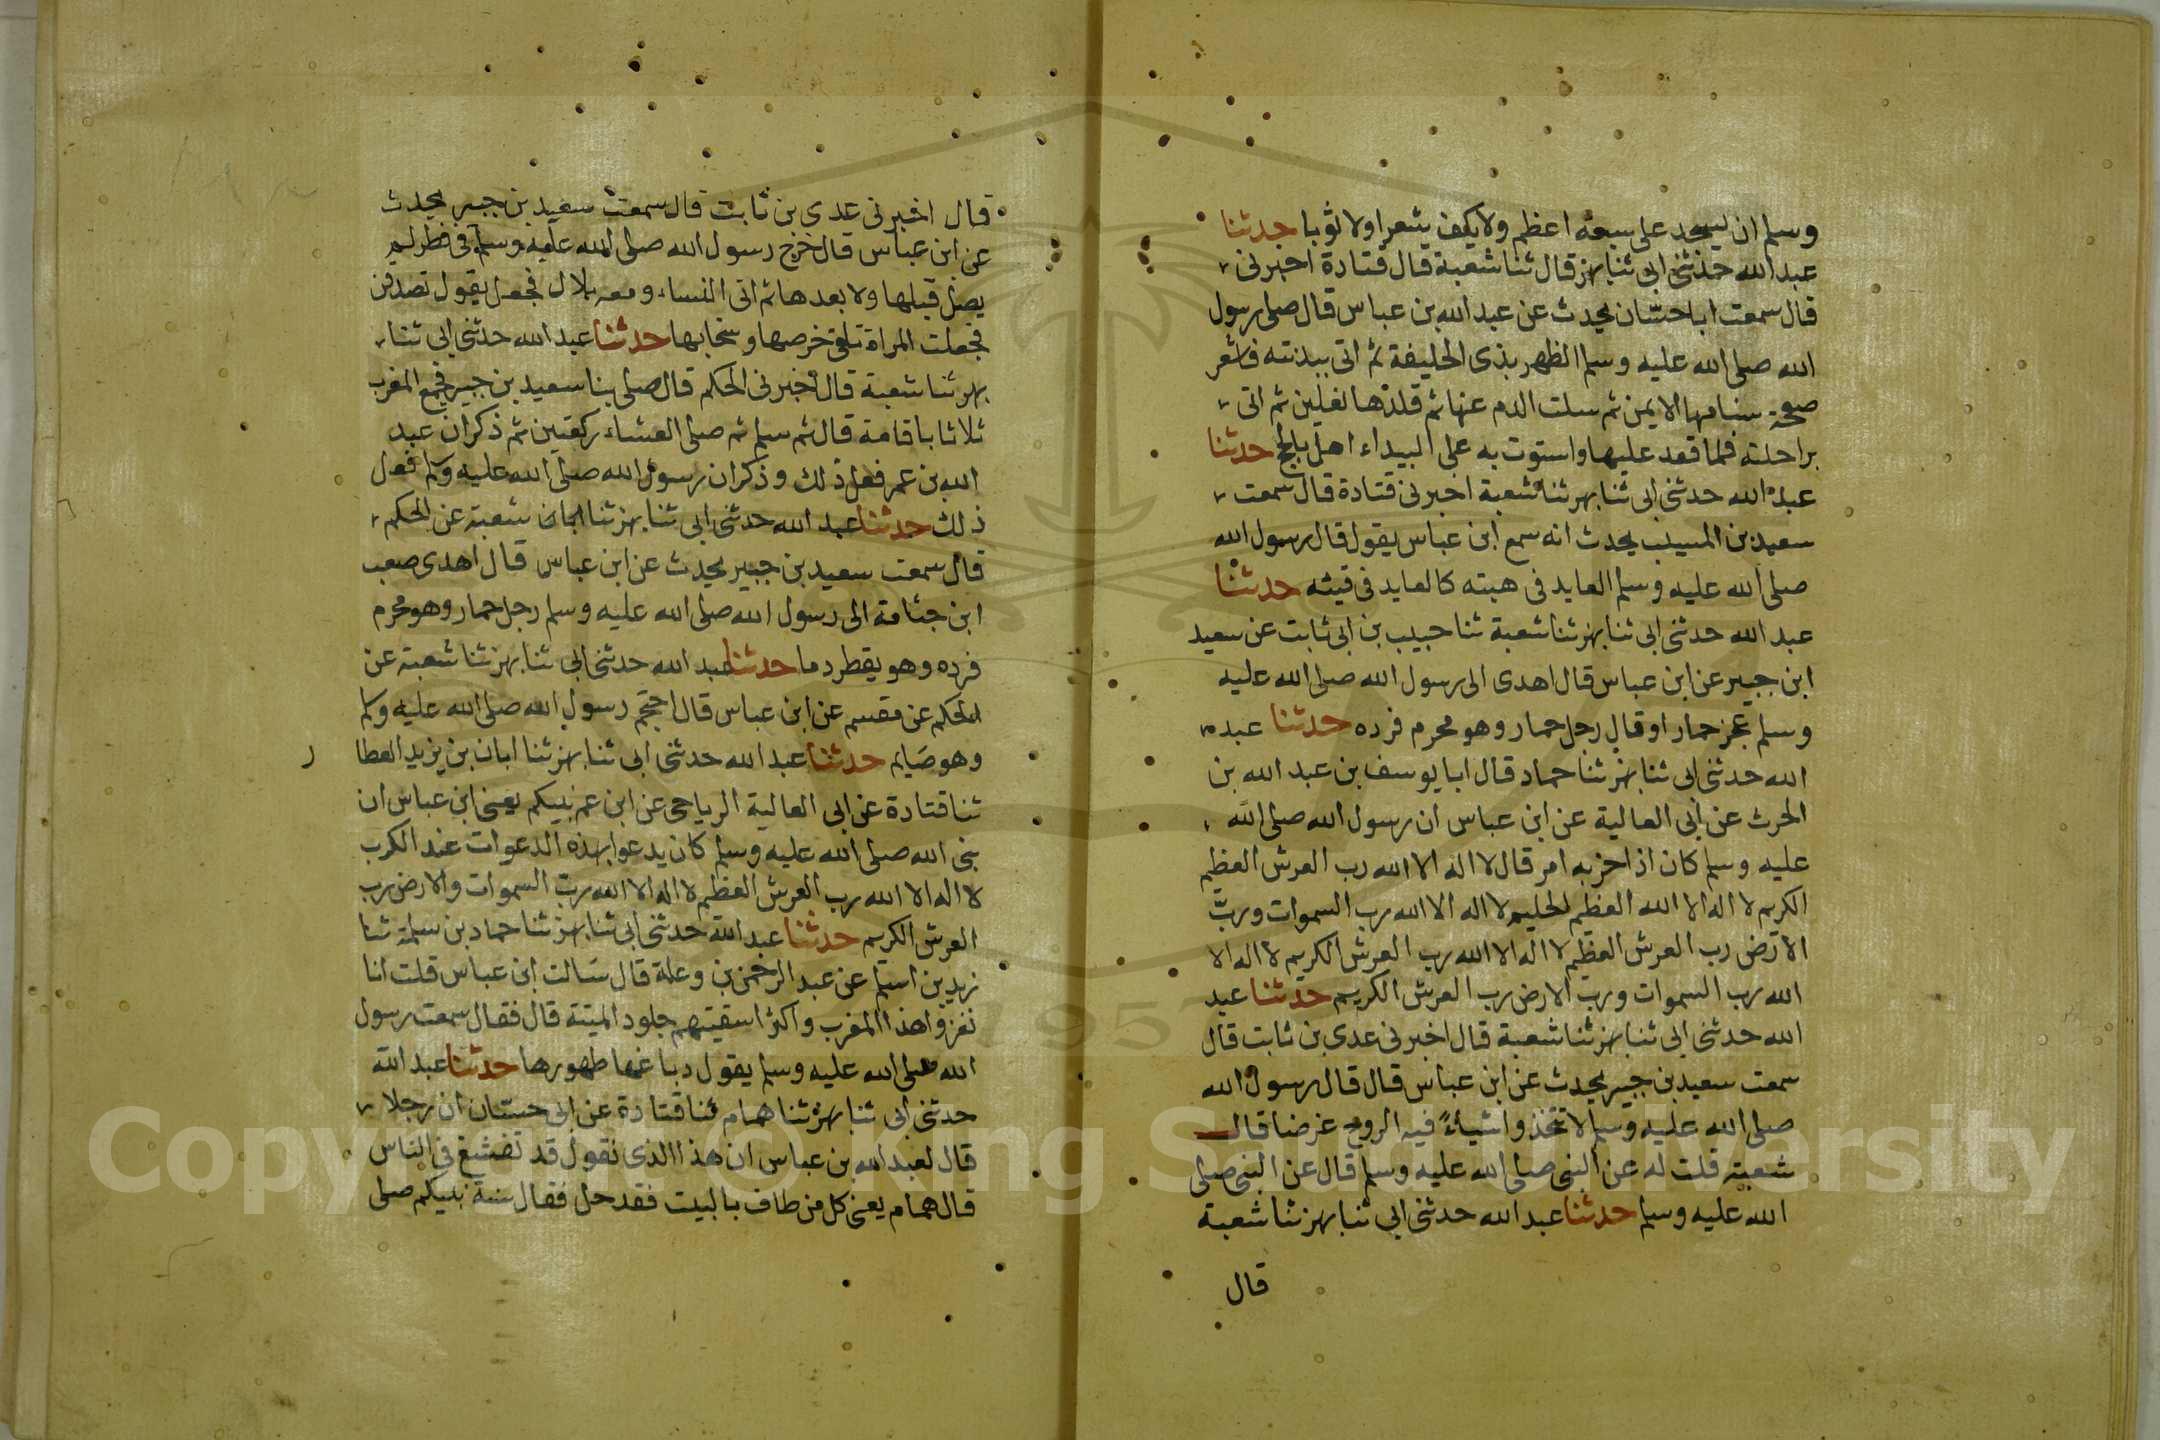 وسلم ان يسجد على سبعة اعظم ولا يكف شعرا ولا ثوبا حدثنا
عبد الله حدثني ابي ثنا بهز قال ثنا شعبة قال قتادة اخبرني
قال سمعت ابا حسان يحدث عن عبد الله بن عباس قال صلى رسول
الله صلى الله عليه وسلم الظهر بذي الحليفة ثم اتى ببدنته فاشعر
صفحة سنامها الايمن ثم سلت الدم عنها ثم قلدها نعلين ثم اتى
براحلته فلما قعد عليها واستوت به على البيداء اهل بالحج حدثنا
عبد الله حدثني ابي ثنا بهز ثنا شعبة اخبرني قتادة قال سمعت
سعيد بن المسيب يحدث انه سمع ابن عباس يقول قال رسول الله
صلى الله عليه وسلم العايد في هبته كالعايد في قيئه حدثنا
عبد الله حدثني ابي ثنا بهز ثنا شعبة ثنا حبيب بن ابي ثابت عن سعيد
ابن جبير عن ابن عباس قال اهدى الى رسول الله صلى الله عليه
وسلم عجز حمار او قال رجل حمار وهو محرم فرده حدثنا عبد
الله حدثني ابي ثنا بهز ثنا حماد قال ابا يوسف بن عبد الله بن
الحرث عن ابي العالية عن ابن عباس ان رسول الله صلى الله
عليه وسلم كان اذا حزبه امر قال لا اله الا الله رب العرش العظيم
الكريم لا اله الا الله العظيم الحليم لا اله الا الله رب السموات ورب
الارض رب العرش العظيم لا اله الا الله رب العرش الكريم لا اله الا
الله رب السموات ورب الارض رب العرش الكريم حدثنا عبد
الله حدثني ابي ثنا بهز ثنا شعبة قال اخبرني عدي بن ثابت قال
سمعت سعيد بن جبير يحدث عن ابن عباس قال قال رسول الله
صلى الله عليه وسلم لا تتخذوا شياء فيه الروح غرضا قال
شعبة قلت له عن النبي صلى الله عليه وسلم قال عن النبي صلى
الله عليه وسلم حدثنا عبد الله حدثني ابي ثنا بهز ثنا شعبة
قال
قال اخبرني عدي بن ثابت قال سمعت سعيد بن جبير يحدث
عن ابن عباس قال خرج رسول الله صلى الله عليه وسلم في فطر لم
يصل قبلها ولا بعدها ثم اتى النساء ومعه بلال فجعل يقول تصدقن
فجعلت المراة تلقي خرصها وسخابها حدثنا عبد الله حدثني ابي ثنا
بهز ثنا شعبة قال اخبرني الحكم قال صلى بنا سعيد بن جبير فجمع المغرب
ثلاثا باقامة قال ثم سلم ثم صلى العشاء ركعتين ثم ذكر ان عبد
الله بن عمر فعل ذلك وذكر ان رسول الله صلى الله عليه وسلم فعل
ذلك حدثنا عبد الله حدثني ابي ثنا بهز ثنا شعبة عن الحكم
قال سمعت سعيد بن جبير يحدث عن ابن عباس قال اهدى صعب
ابن جثامة الى رسول الله صلى الله عليه وسلم رجل حمار وهو محرم
فرده وهو يقطر دما حدثنا عبد الله حدثني ابي ثنا بهز ثنا شعبة عن
الحكم عن مقسم عن ابن عباس قال احتجم رسول الله صلى الله عليه وسلم
وهو صايم حدثنا عبد الله حدثني ابي ثنا بهز ثنا ابان بن يزيد العطا
ر
ثنا قتادة عن ابي العالية الرياحي عن ابن عم نبيكم يعني ابن عباس ان
نبي الله صلى الله عليه وسلم كان يدعوا بهذه الدعوات عند الكرب
لا اله الا الله رب العرش العظيم لا اله الا الله رب السموات والارض رب
العرش الكريم حدثنا عبد الله حدثني ابي ثنا بهز ثنا حماد بن سلمة ثنا
زيد بن اسلم عن عبد الرحمن بن وعلة قال سالت ابن عباس قلت انا
نغزوا هذا المغرب واكثر اسقيتهم جلود الميتة قال فقال سمعت رسول
الله صلى الله عليه وسلم يقول دباغها طهورها حدثنا عبد الله
حدثني ابي ثنا بهز ثنا همام ثنا قتادة عن ابي حسان ان رجلا
قال لعبد الله بن عباس ان هذا الذي تقول قد تفشغ في الناس
قال همام يعني كل من طاف بالبيت فقد حل فقال سنة نبيكم صلى
Copyright © King Saud University
1957